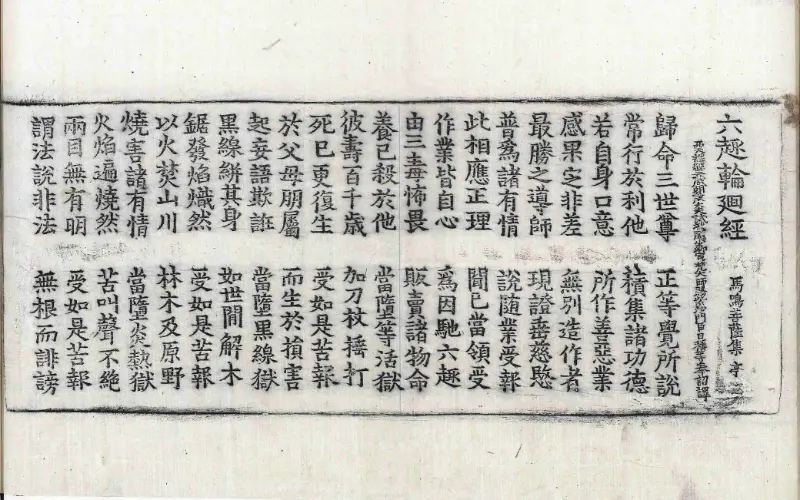 六趣輪廻經 馬鳴菩薩集 守
沙門臣日稱等奉詔譯
歸命三世尊 正等覺所說
常行於利他 積集諸功德
若自身口意 所作善惡業
感果定非差 無別造作者
最勝之導師 現證垂慈愍
普爲諸有情 說随業受報
此相應正理 聞已當領受
作業皆自心 爲因馳六趣
由三毒怖畏 販賣諸物命
養已殺於他 當墮等活獄
彼壽百千歲 加刀杖捶打
死已更復生 受如是苦報
於父母朋屬 而生於損害
起妄語欺誑 當墮黑線獄
黑線絣其身 如世間解木
鋸發焰熾然 受如是苦報
以火焚山川 林木及原野
燒害諸有情 當墮炎熱獄
火焰遍燒然 苦叫聲不絕
兩目無有明 受如是苦報
謂法說非法 無根而誹謗